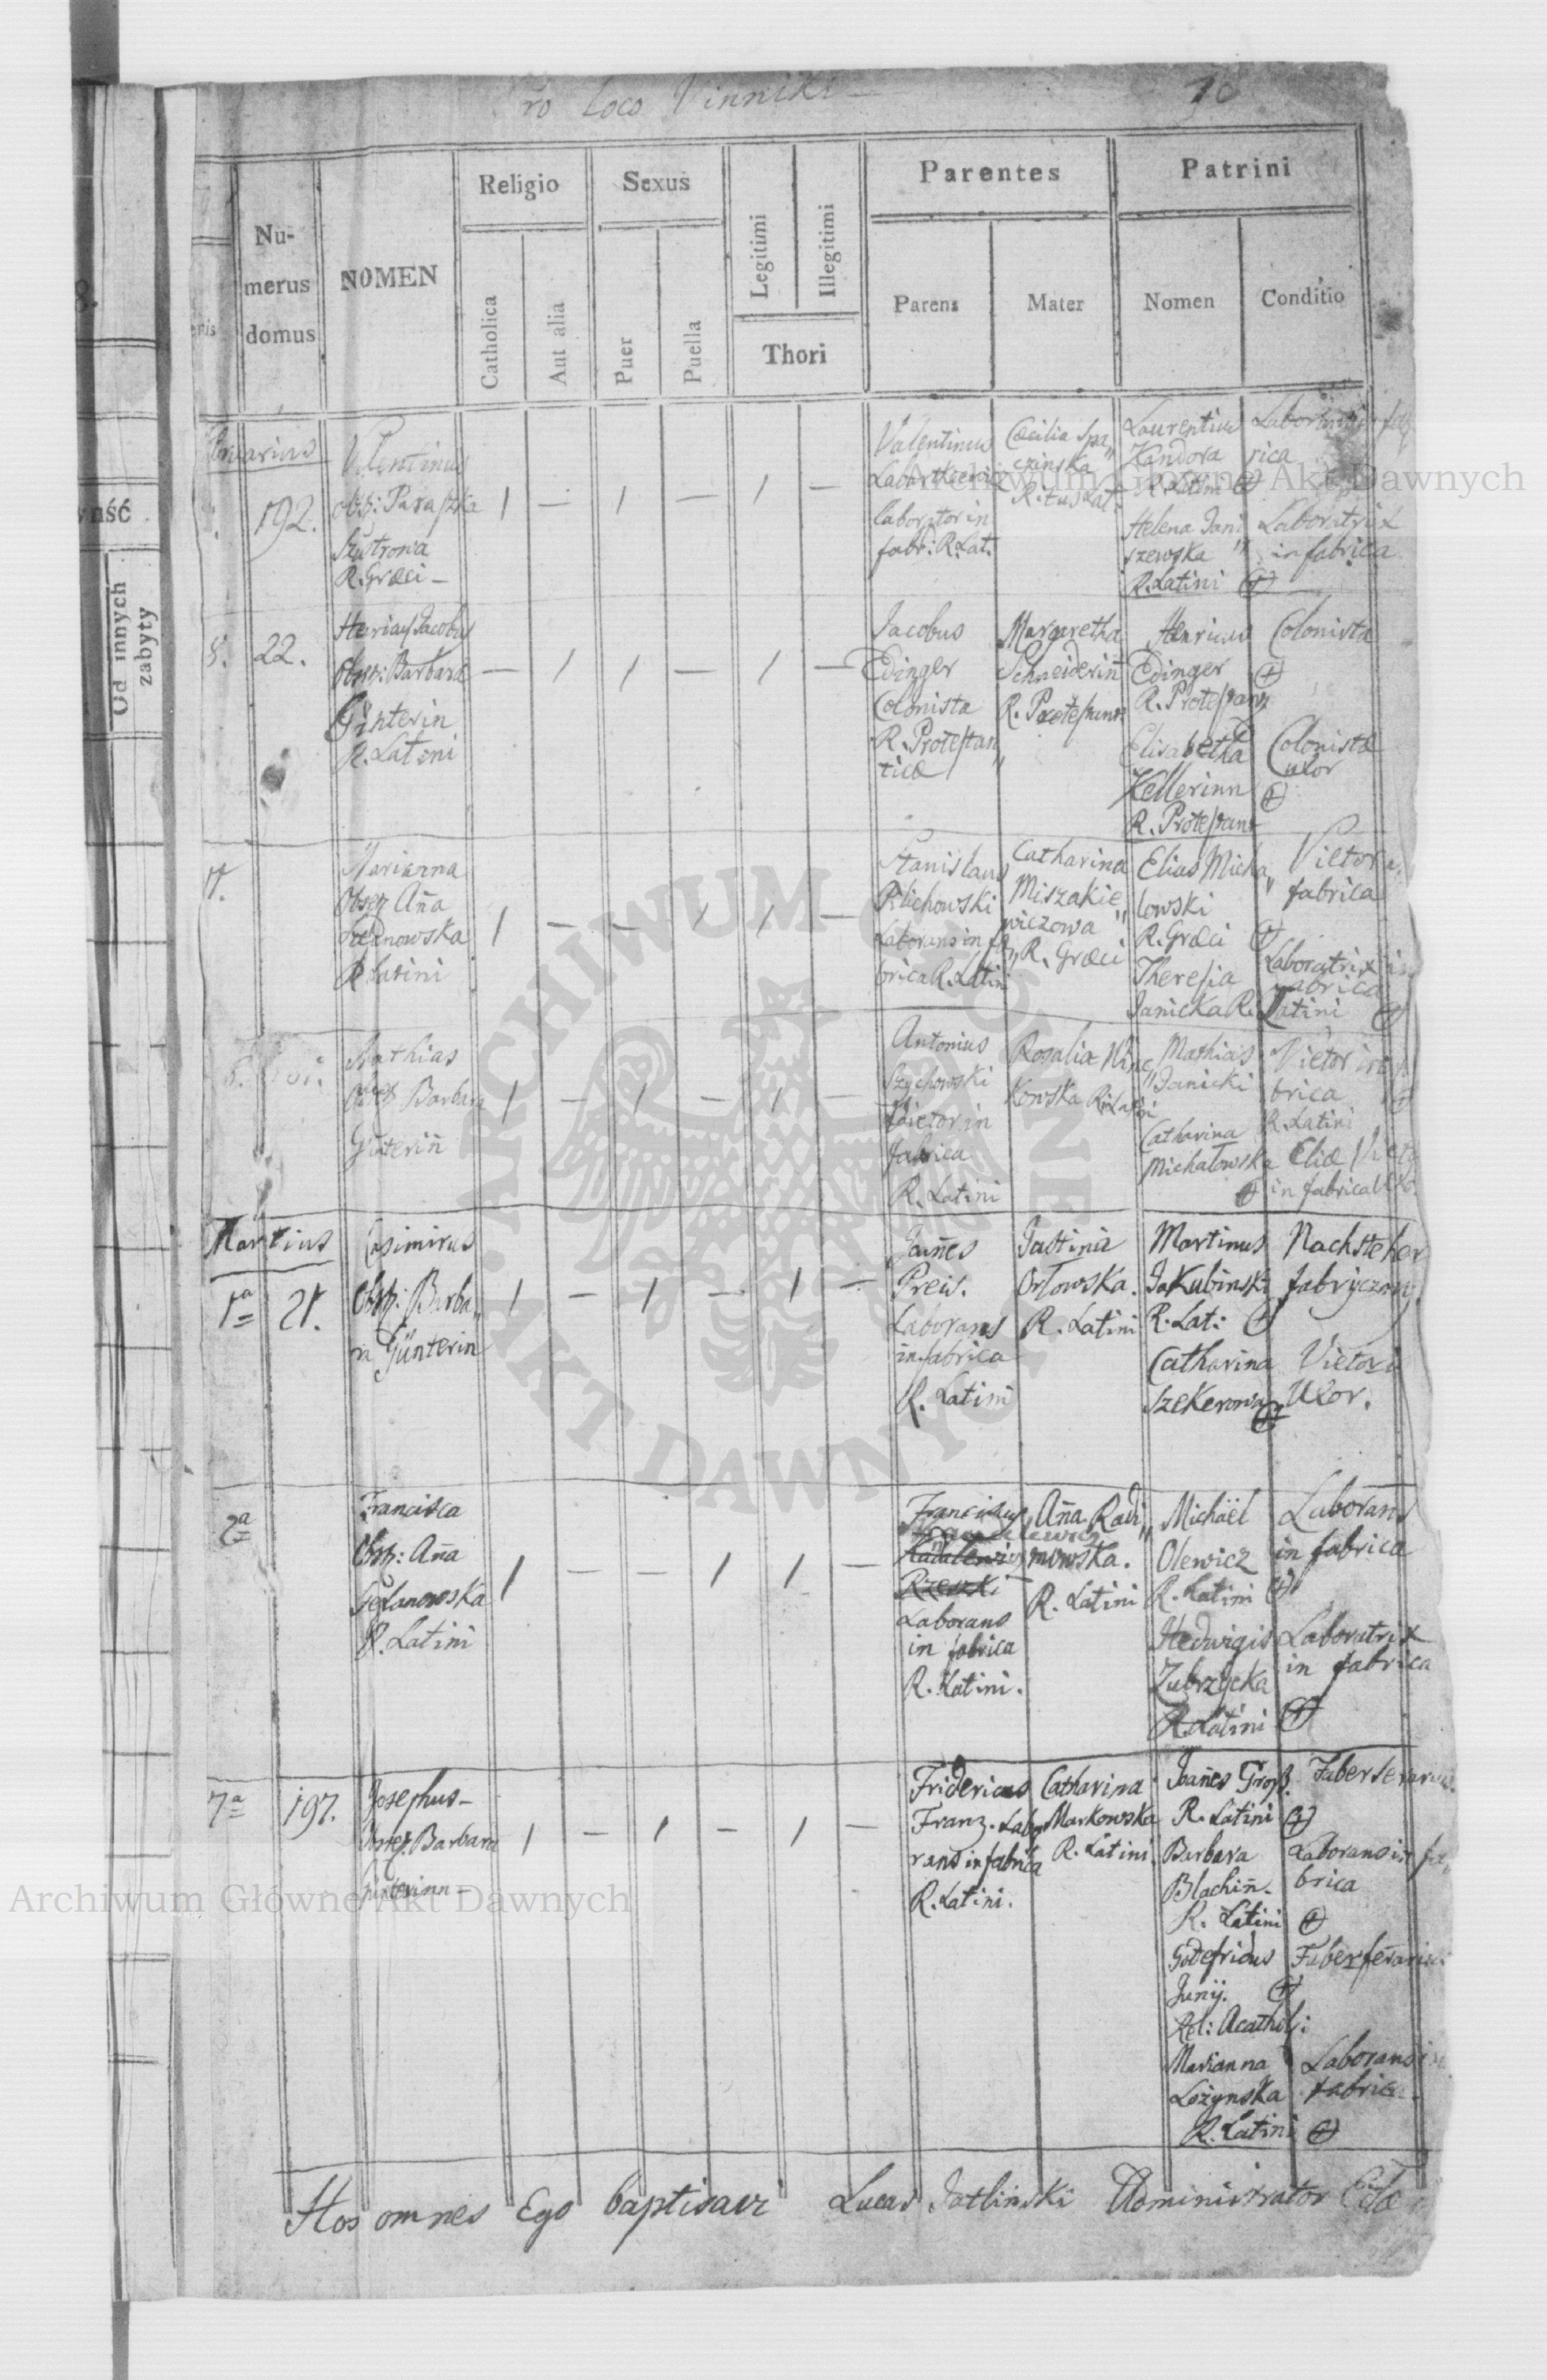 Pro Loco Vinniki
Religio
Sexus
Legitimi
Illegitimi
Parentes
Patrini
Numerus domus
NOMEN
Catholica
Aut alia
Puer
Puella
Thori
Parens
Mater
Nomen
Conditio
ność
Od innych
zabyty
192.
Valentinus
obst: Paraszka
R. Græci
1 — 1 — 1 —
Valentinus
laborator in
fabr: R. Lat.
Cæcilia Spa„
czinska
R. tus Lat.
Laurentius
Kandora
R. Latini
Helena Jani
szewska
R. Latini
Laborator in fab
rica
Laboratrix
in fabrica
8.
22.
Jacobus
Obst: Barbara
Ginterin
R. Latini
— 1 1 — 1 —
Jacobus
Edinger
Colonista
R. Protestan„
ticæ
Margaretha
Schneiderin
R. Protestant
Henricus
Edinger
R. Protestant
Elisabetha
Kellerinn
R. Protestant
Colonista
Colonistæ
uxor
Marianna
Obset Aña
R Latini
1 — — 1 1 —
Stanislaus
Laborans in fa„
brica R. Latini
Catharina
Miszakie„
wiczowa
R. Græci
Elias Micha„
lowski
R. Græci
Theresia
Janicka R. Latini
Vietor
fabrica
Laboratrix in
fabrica
Mathias
Obset Barbara
Günteriñ
1 — 1 — 1 —
Antonius
Szychowski
Vietor in
fabrica
R. Latini
Rosalia
kowska R. Latini
Mathias
Janicki
Catharina
Michalowska
Vietor in fa
brica
R. Latini
Eliæ Vieto
in fabrica Uxor
Martius
1ª
21.
Casimirus
Obst: Barba„
ra Günterin
1 — 1 — 1 —
Joañes
Preis.
Laborans
in fabrica
R. Latini
Justina
Orlowska.
R. Latini
Martinus
Jakubinski
R. Lat:
Catharina
Szekerowa
Nachsteher
fabryczny.
Vietoris
Uxor.
2ª
Francisca
Obst: Aña
R. Latini
1 — — 1 1 —
Franciscus
Rzeszki
Laborans
in fabrica
R. Latini.
Aña Radi„
mowska.
R. Latini
Michaël
Olewicz
R. Latini
Hedwigis
Zubrzycka
R. Latini
Laborans
in fabrica
Laboratrix
in fabrica
7ª
197.
Josephus
Obset. Barbara
Günterinn
1 — 1 — 1 —
Fridericus
Franz. Labo
rans in fabrica
R. Latini.
Catharina
Markowska
R. Latini.
Joañes Groß.
R. Latini
Barbara
Blachiñ.
R. Latini
Godefridus
Junÿ.
Rel: Acathol:
Marianna
Lożynska
R. Latini
Faber
Laborans in fa„
brica
Faber ferarius
Laborans in
fabrica.
Hos omnes Ego baptisavi Lucas Jatlinski Administrator
Archiwum Główne Akt Dawnych
Archiwum Główne Akt Dawnych
ARCHIWUM GŁÓWNE AKT DAWNYCH